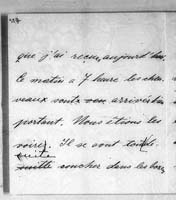 que j'ai recu, aujourd'hui
Ce matin a 7 heure les che
veaux sont arrivés
portant. Nous étions les
voirs. Il se sont
suite
coucher dans les